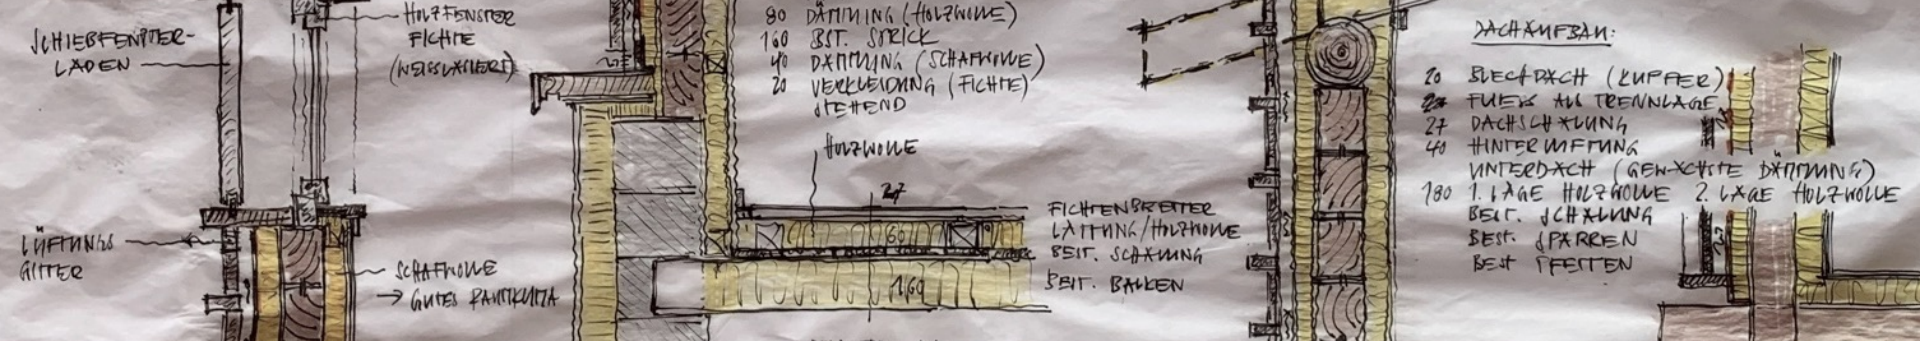 SCHIEBFENSTER-
LADEN
HOLZFENSTER
FICHTE
(WEISSLASIERT)
LÜFTUNGS
GITTER
SCHAFWOLLE
→ GUTES RAUMKLIMA
80 DÄMMUNG (HOLZWOLLE)
160 BST. STRICK
40 DÄMMUNG (SCHAFWOLLE)
20 VERKLEIDUNG (FICHTE)
STEHEND
HOLZWOLLE
27
60
160
FICHTENBRETTER
LATTUNG/HOLZWOLLE
BEST. SCHALUNG
BEST. BALKEN
DACHAUFBAU:
20 BLECHDACH (KUPFER)
FLIES ALS TRENNLAGE
27 DACHSCHALUNG
40 HINTERLÜFTUNG
UNTERDACH (GEWACHSTE DÄMMUNG)
180 1. LAGE HOLZWOLLE 2. LAGE HOLZWOLLE
BEST. SCHALUNG
BEST. SPARREN
BEST PFETTEN